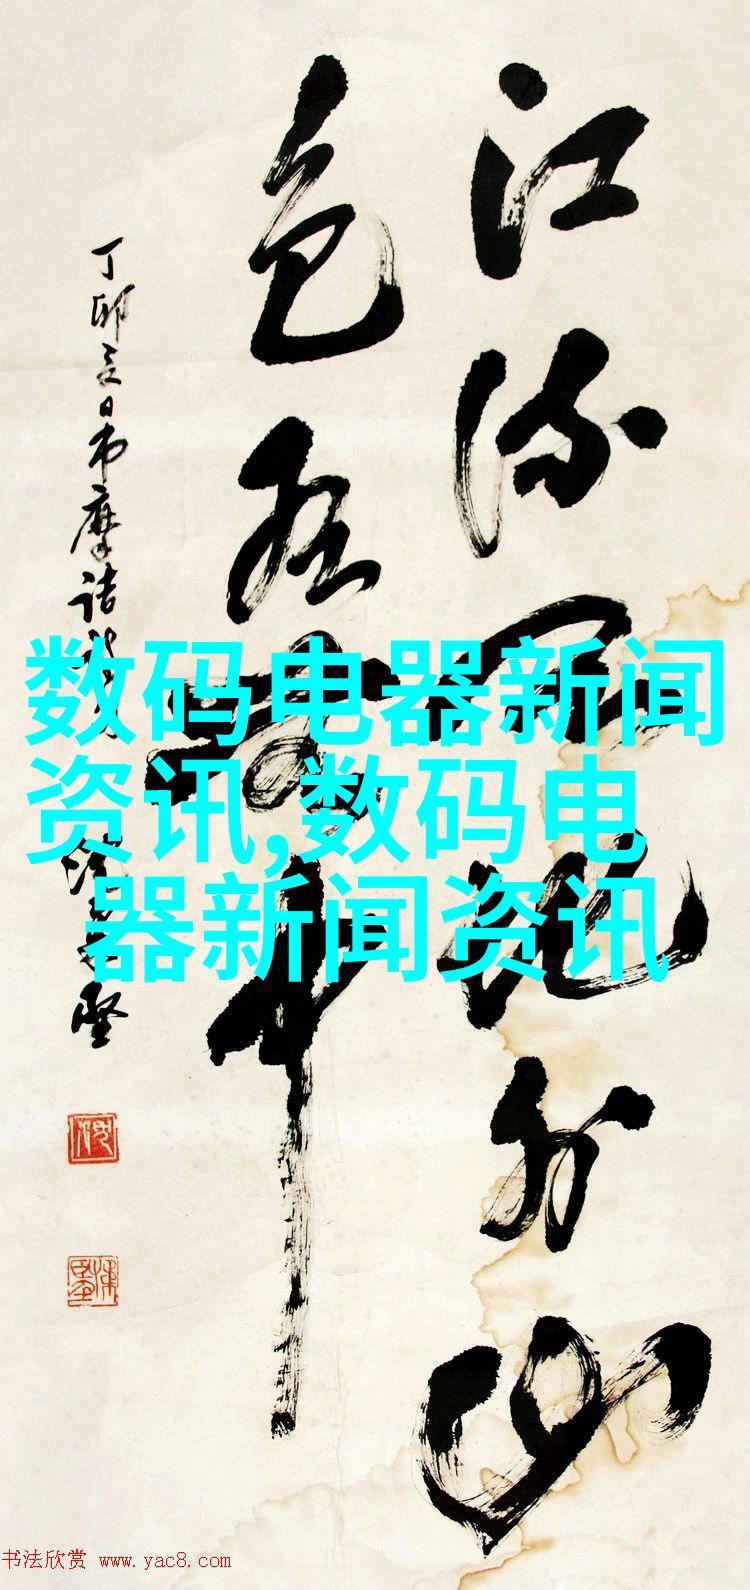 江流天地外山
色有无中
丁卯夏日書摩诘
数码电器新闻
资讯,数码电
器新闻资讯
书法欣赏 www.yac8.com